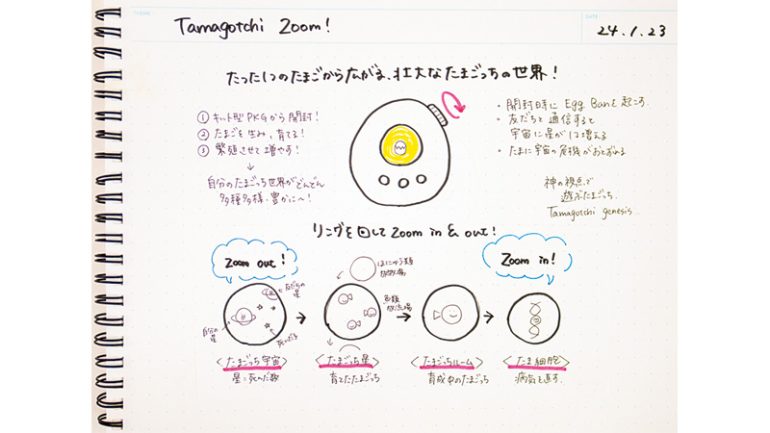 Tamagotchi Zoom!
DATE
24.1.23
たった1つのたまごから広がる、壮大なたまごっちの世界!
① キット型PKGから開封!
② たまごを生み、育てる!
③ 繁殖させて増やす!
自分のたまごっち世界がどんどん
多種多様・豊かに〜!
・開封時に Egg Banを起こす
・友だちと通信すると
宇宙に星が1つ増える
・たまに宇宙の危機がおとずれる
神の視点で
遊ぶたまごっち。
Tamagotchi genesis
リングを回して Zoom in & out!
Zoom out!
Zoom in!
友だちの星
自分の星
ほにゅう類
放牧場
魚類
放流場
<たまごっち宇宙>
星=死んだ数
<たまごっち星>
育てたたまごっち
<たまごっちルーム>
育成中のたまごっち
<たま細胞>
病気を直す。